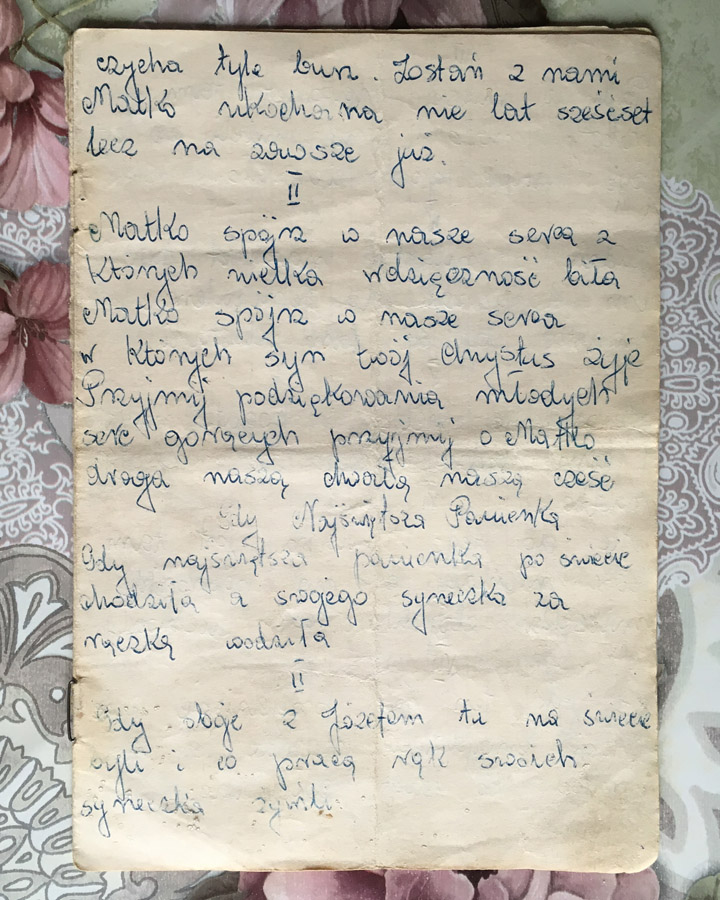 czycha tyle burz. Zostań z nami
Matko ukochana nie lat sześćset
lecz na zawsze już.
II
Matko spójrz w nasze serca z
których wielka wdzięczność biła
Matko spójrz w nasze serca
w których syn twój Chrystus żyje
Przyjmij podziękowania młodych
serc gorących przyjmij o Matko
droga naszą chwałą naszą cześć
Gdy Najświętsza Panienka
Gdy najświętsza panienka po świecie
chodziła a swojego syneczka za
rączką wodziła
II
Gdy oboje z Józefem tu na świecie
byli i w pracą rąk swoich
syneczka żywili